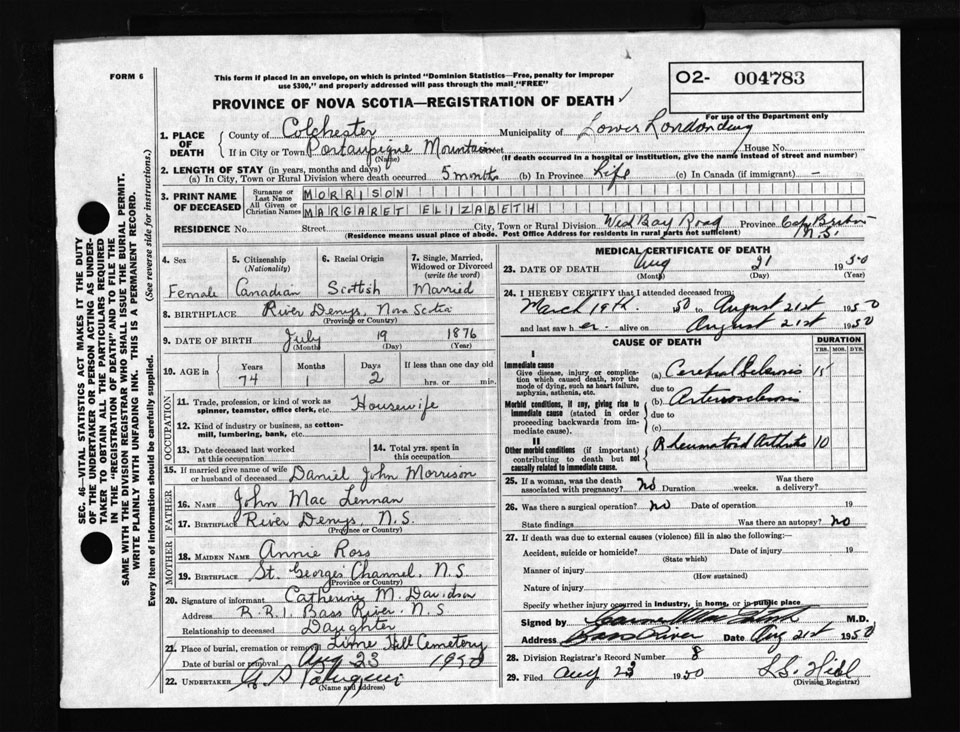 FORM 6
This form if placed in an envelope, on which is printed "Dominion Statistics—Free, penalty for improper
use $300," and properly addressed will pass through the mail "FREE"
O2- 004783
For use of the Department only
PROVINCE OF NOVA SCOTIA—REGISTRATION OF DEATH
1. PLACE OF DEATH
County of Colchester Municipality of Lower Londonderry
If in City or Town Portaupique Mountain Street House No.
(Name) (If death occurred in a hospital or institution, give the name instead of street and number)
2. LENGTH OF STAY (in years, months and days)
(a) In City, Town or Rural Division where death occurred 5 month (b) In Province Life (c) In Canada (if immigrant) —
3. PRINT NAME OF DECEASED
Surname or Last Name MORRISON
All Given or Christian Names MARGARET ELIZABETH
RESIDENCE No. Street City, Town or Rural Division West Bay Road Province Cape Breton N.S.
(Residence means usual place of abode. Post Office Address for residents in rural parts not sufficient)
4. Sex
Female
5. Citizenship (Nationality)
Canadian
6. Racial Origin
Scottsh
7. Single, Married, Widowed or Divorced (write the word)
Married
8. BIRTHPLACE River Denys, Nova Scotia
(Province or Country)
9. DATE OF BIRTH July 19 1876
(Month) (Day) (Year)
10. AGE in Years Months Days If less than one day old
74 1 2 hrs. or min.
OCCUPATION
11. Trade, profession, or kind of work as spinner, teamster, office clerk, etc. Housewife
12. Kind of industry or business, as cotton-mill, lumbering, bank, etc.
13. Date deceased last worked at this occupation
14. Total yrs. spent in this occupation
15. If married give name of wife or husband of deceased Daniel John Morrison
FATHER
16. Name John Mac Lennan
17. Birthplace River Denys, N.S.
(Province or Country)
MOTHER
18. MAIDEN NAME Annie Ross
19. BIRTHPLACE St. Georges Channel, N.S
(Province or Country)
20. Signature of informant Catherine M. Davidson
Address R.R.1, Bass River. N.S
Relationship to deceased Daughter
21. Place of burial, cremation or removal Lime Hill Cemetery
Date of burial or removal Aug 23 1950
22. UNDERTAKER
(Name and address)
MEDICAL CERTIFICATE OF DEATH
23. DATE OF DEATH Aug 21 1950
(Month) (Day) (Year)
24. I HEREBY CERTIFY that I attended deceased from:
March 19th 1950 to August 21st 1950
and last saw her alive on August 21st 1950
CAUSE OF DEATH
DURATION
YRS. MOS. DYS.
I
Immediate cause
Give disease, injury or complication which caused death, NOT the mode of dying, such as heart failure, asphyxia, asthenia, etc.
(a) Cerebral Sclerosis 15
due to
Morbid conditions, if any, giving rise to immediate cause (stated in order proceeding backwards from immediate cause).
(b) Arteriosclerosis
due to
(c)
II
Other morbid conditions (if important) contributing to death but not causally related to immediate cause.
Rheumatoid Arthritis 10
25. If a woman, was the death associated with pregnancy? No Duration weeks. Was there a delivery?
26. Was there a surgical operation? No Date of operation 19
State findings Was there an autopsy? No
27. If death was due to external causes (violence) fill in also the following:—
Accident, suicide or homicide? Date of injury 19
(State which)
Manner of injury
(How sustained)
Nature of injury
Specify whether injury occurred in industry, in home, or in public place
Signed by M.D.
Address Bass River Date Aug 21st 1950
28. Division Registrar's Record Number 8
29. Filed Aug 23 1950
(Division Registrar)
SEC. 46—VITAL STATISTICS ACT MAKES IT THE DUTY
OF THE UNDERTAKER OR PERSON ACTING AS UNDER-
TAKER TO OBTAIN ALL THE PARTICULARS REQUIRED
IN THE "REGISTRATION OF DEATH" AND TO FILE THE
SAME WITH THE DIVISION REGISTRAR WHO SHALL ISSUE THE BURIAL PERMIT.
WRITE PLAINLY WITH UNFADING INK. THIS IS A PERMANENT RECORD.
Every item of information should be carefully supplied. (See reverse side for instructions.)